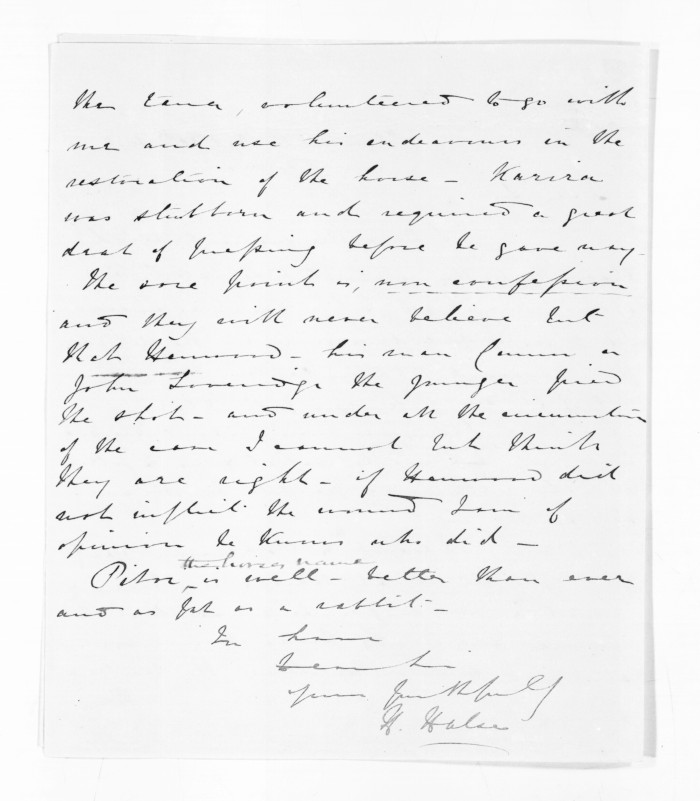 the Taua, volunteered to go with
me and use his endeavours in the
restoration of the horse – Karira
was stubborn and required a great
deal of pressing before he gave way –
the sore point is, non confession
and they will never believe but
that Henwood – his man or
John Loveridge the younger fired
the shot – and under all the circumstances
of the case I cannot but think
they are right – if Henwood did
not inflict the wound I am of
opinion he knows who did –
the horses name
Pitoe is well – better than ever
and as fat as a rabbit –
In haste
Dear Sir
yours faithfully
H. Halse